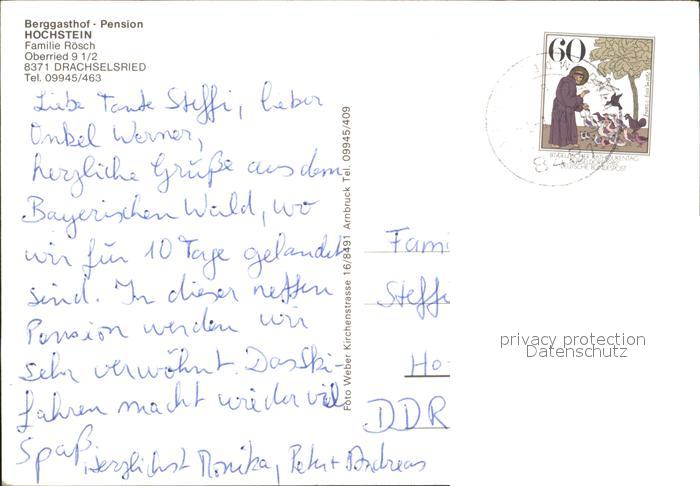 Berggasthof - Pension
HOCHSTEIN
Familie Rösch
Oberried 9 1/2
8371 DRACHSELSRIED
Tel. 09945/463
Liebe Tante Steffi, lieber
Onkel Werner,
herzliche Grüße aus dem
Bayerischen Wald, wo
wir für 10 Tage gelandet
sind. In dieser netten
Pension werden wir
sehr verwöhnt. Das Ski-
fahren macht wieder viel
Spaß.
Herzlichst Monika, Peter + Andreas
Foto Weber Kirchenstrasse 16/8491 Arnbruck Tel. 09945/409
60
DEUTSCHE BUNDESPOST
Fami
Steffi
Ho
DDR
privacy protection
Datenschutz